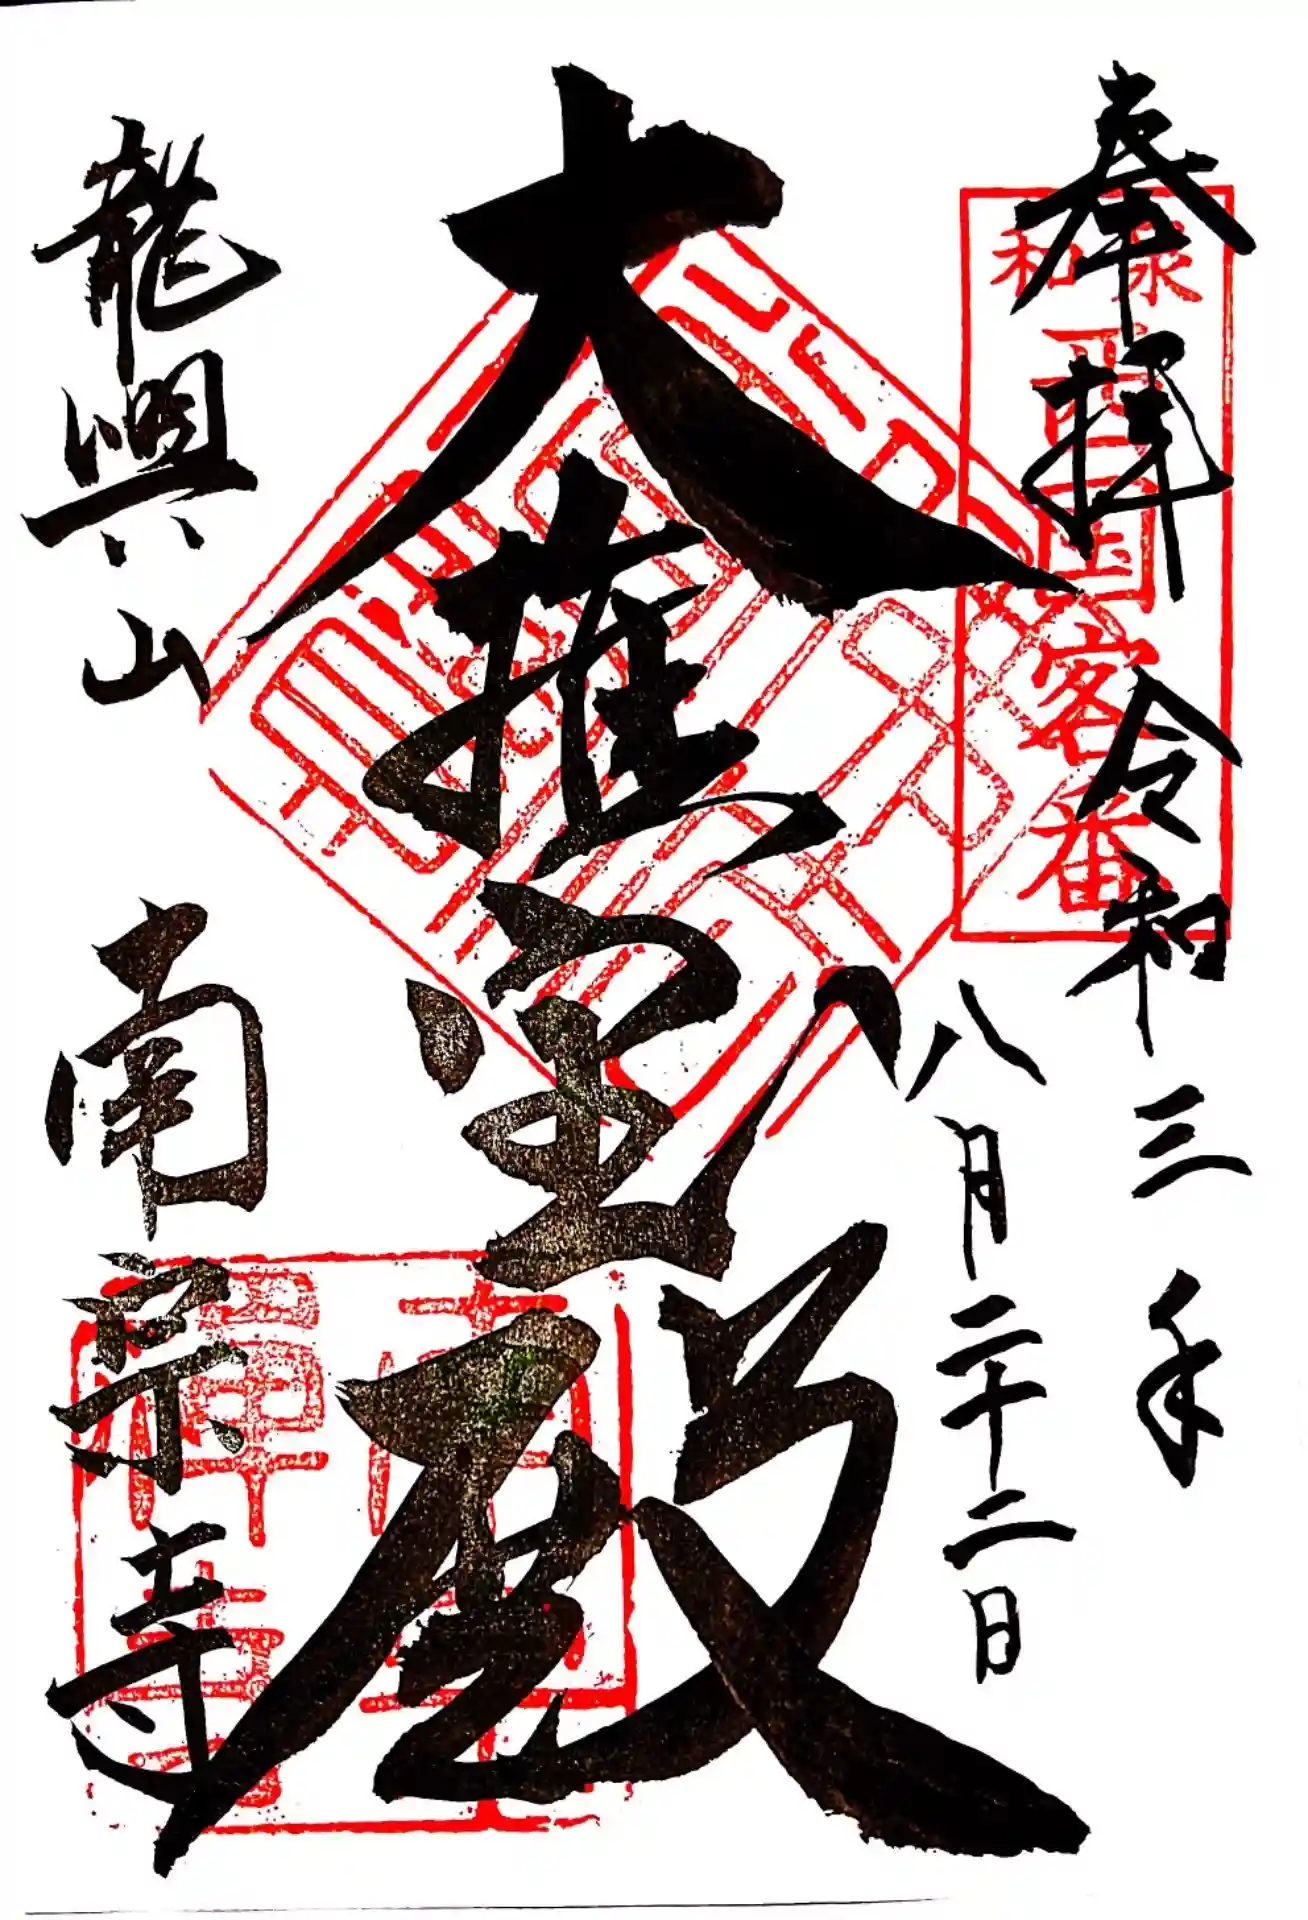 奉拝
令和三年
八月二十二日
和泉
西国客番
大雄宝殿
龍興山
南宗寺